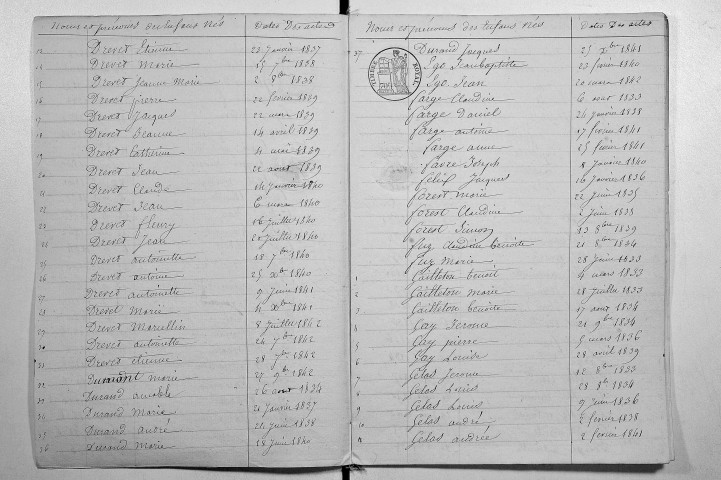 Noms et prénoms des enfans Nés Dates Des actes
Drevet Etienne 22 Janvier 1837
Drevet Marie 15 7bre 1838
Drevet Jeanne Marie 2 8bre 1838
16 Drevet pierre 22 fevrier 1839
17 Drevet Jacques 22 mars 1839
18 Drevet 14 avril 1839
19 Drevet Catherine 4 mai 1839
20 Drevet Jean 22 aout 1839
21 Drevet Claude 14 Janvier 1840
22 Drevet Jean 6 mars 1840
23 Drevet fleury 16 Juillet 1840
24 Drevet Jean 20 Juillet 1840
25 Drevet antoinette 18 7bre 1840
26 Drevet antoine 25 Xb 1840
27 Drevet antoinette 9 Juin 1841
28 Drevet Marie 4 Xbre 1841
29 Drevet Marcellin 8 Juillet 1842
30 Drevet antoinette 24 7b 1842
31 Drevet etienne 28 7bre 1842
32 Durant marie 27 9bre 1842
Durand 26 aout 1834
Durand Marie 21 Janvier 1837
Durand andré 24 Juin 1838
36 Durand Marie 18 Juin 1840
Noms et prénoms des enfans Nés Dates Des actes
37 Durand Jacques 25 Xbre 1841
Ego Jeanbaptiste 23 fevrier 1840
Ego Jean 20 mars 1842
TIMBRE ROYAL
farge Claudine 6 aout 1833
farge Daniel 24 janvier 1838
farge antoine 17 fevrier 1841
farge anne 25 fevrier 1841
favre Joseph 8 Janvier 1840
felix Jacques 16 Janvier 1836
forest Marie 22 Juin 1835
forest Claudine 2 Juin 1838
forest Simon 13 8bre 1839
fuz claudine benoite 21 8bre 1834
fuz Marie 28 Juin 1833
1 Gailleton benoit 4 mars 1833
2 Gailleton marie 28 Juillet 1833
3 Gailleton benoite 17 aout 1834
4 Gay Jerome 21 9bre 1834
5 Gay pierre 5 mars 1836
6 Gay Louise 28 avril 1839
7 Gelas Jerome 12 8bre 1833
8 Gelas Louis 28 8b 1834
9 Gelas Louis 9 Juin 1836
Gelas andré 2 fevrier 1838
Gelas andrée 2 fevrier 1841